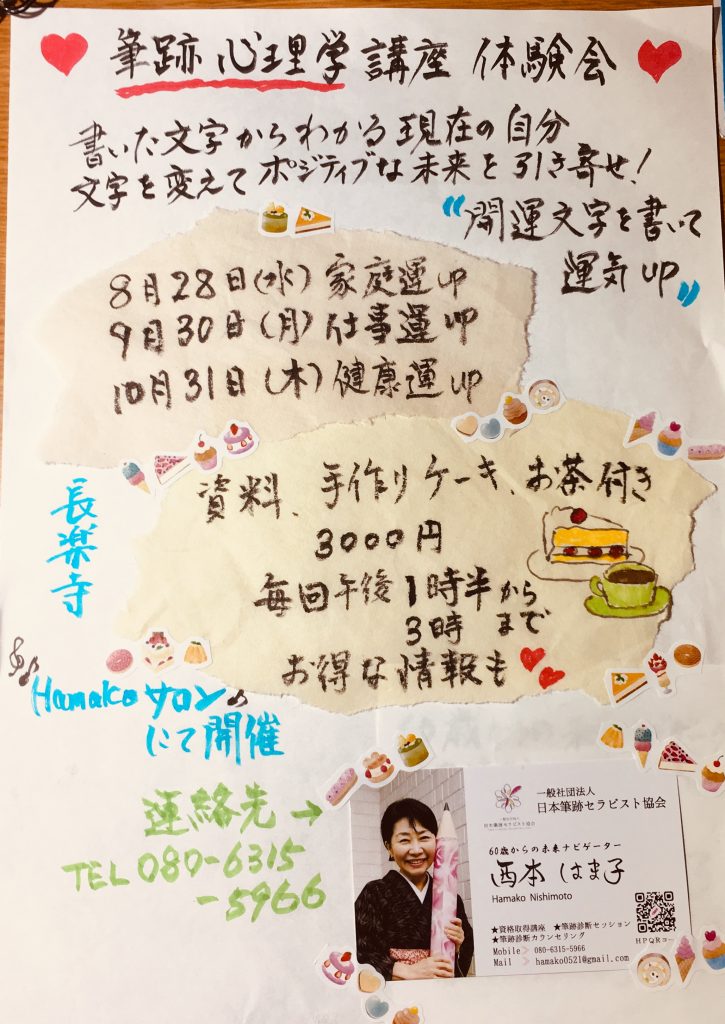 筆跡心理学講座 体験会
書いた文字からわかる現在の自分
文字を変えてポジティブな未来を引き寄せ!
"開運文字を書いて
運気UP"
8月28日(水)家庭運UP
9月30日(月)仕事運UP
10月31日(木)健康運UP
資料、手作りケーキ、お茶付き
3000円
毎回午後1時半から
3時まで
お得な情報も
長楽寺
Hamakoサロン
にて開催
連絡先→
TEL 080-6315
-5966
一般社団法人
日本筆跡セラピスト協会
60歳からの未来ナビゲーター
西本 はま子
Hamako Nishimoto
★資格取得講座 ★筆跡診断セッション
★筆跡診断カウンセリング
Mobile 080-6315-5966
Mail hamako0521@gmail.com
HPQRコー